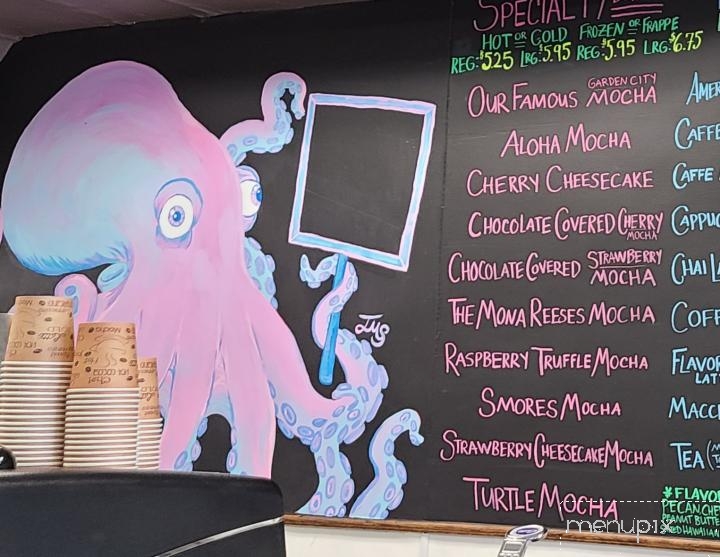 SPECIALTY
HOT OR COLD FROZEN OR FRAPPE
REG:$5.25 LRG:$5.95 REG:$5.95 LRG:$6.75
OUR FAMOUS GARDEN CITY MOCHA
ALOHA MOCHA
CHERRY CHEESECAKE
CHOCOLATE COVERED CHERRY MOCHA
CHOCOLATE COVERED STRAWBERRY MOCHA
THE MONA REESES MOCHA
RASPBERRY TRUFFLE MOCHA
SMORES MOCHA
STRAWBERRY CHEESECAKE MOCHA
TURTLE MOCHA
AMER
CAFFE
CAFFE
CAPPUC
CHAI LA
COFF
FLAVOR
LATT
MACC
TEA
*FLAVO
PECAN, CHE
PEANUT BUTTE
HAWAIIAN
menupix